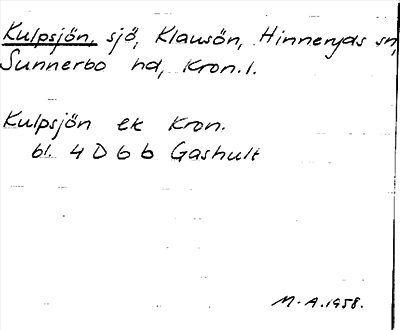 Kulpsjön, sjö, Klausön, Hinneryds sn,
Sunnerbo hd, Kron. l.
Kulpsjön ek Kron.
bl. 4 D 6 b Gashult
M-A. 1958.